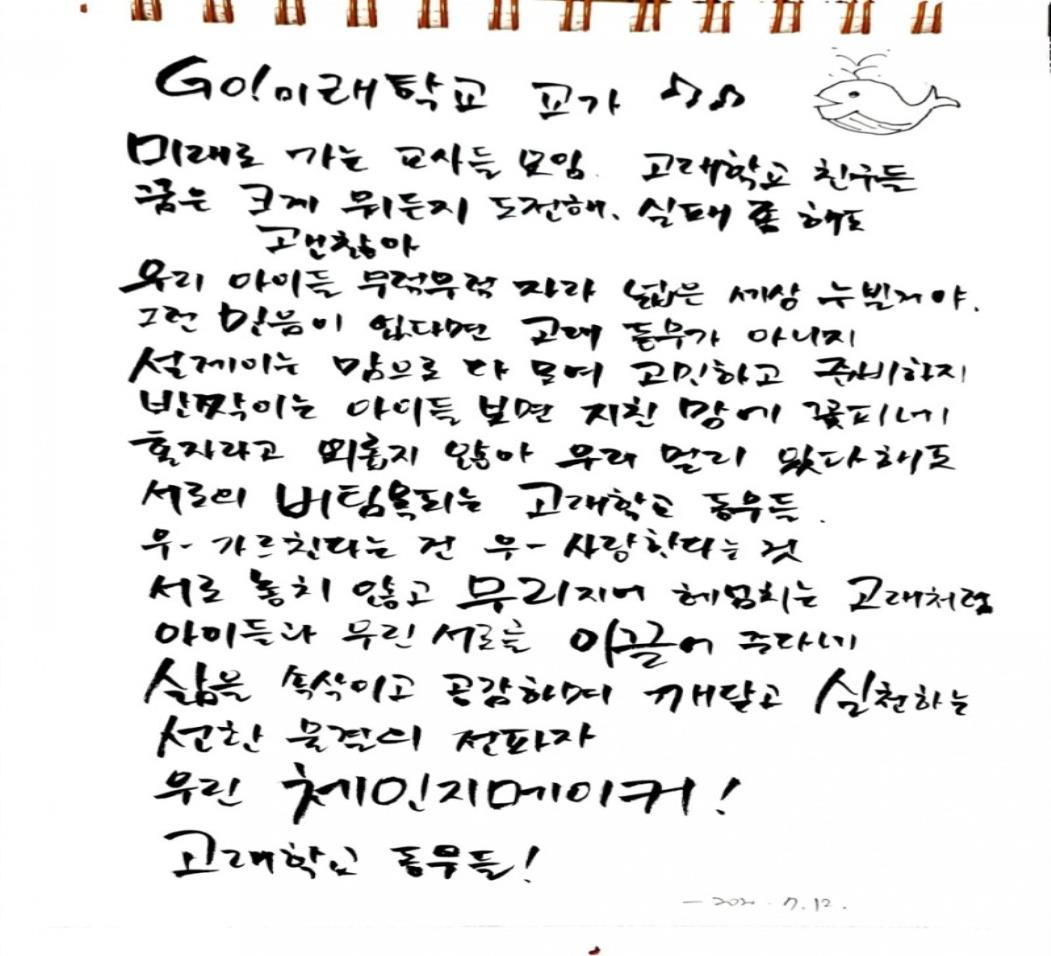 Go! 미래학교 교가 ♪♫
미래로 가는 교사들 모임. 고래학교 친구들
꿈은 크게 뭐든지 도전해. 실패 좀 해도
괜찮아
우리 아이들 무럭무럭 자라 넓은 세상 누빌거야.
그런 믿음이 없다면 고래 동무가 아니지
설레이는 맘으로 다 모여 고민하고 준비하지
반짝이는 아이들 보면 지친 맘에 꽃피네
혼자라고 외롭지 않아 우리 멀리 있다해도
서로의 버팀목되는 고래학교 동무들.
우- 가르친다는 건 우- 사랑한다는 것
서로 놓치 않고 무리지어 헤엄치는 고래처럼
아이들과 우린 서로를 이끌어 주다네
삶을 속삭이고 공감하며 깨닫고 실천하는
선한 물결의 전파자
우린 체인지메이커!
고래학교 동무들!